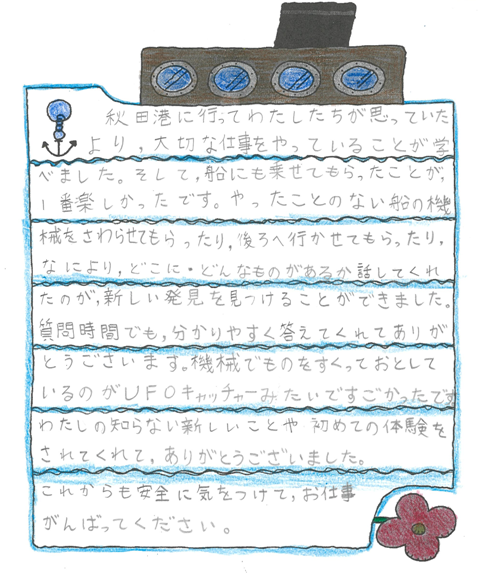 秋田港に行ってわたしたちが思っていた
より,大切な仕事をやっていることが学
べました。そして,船にも乗せてもらったことが,
1番楽しかったです。やったことのない船の機
械をさわらせてもらったり,後ろへ行かせてもらったり,
なにより,どこに・どんなものがあるか話してくれ
たのが,新しい発見を見つけることができました。
質問時間でも,分かりやすく答えてくれてありが
とうございます。機械でものをすくっておとして
いるのがUFOキャッチャーみたいですごかったです
わたしの知らない新しいことや初めての体験を
されてくれて,ありがとうございました。
これからも安全に気をつけて,お仕事
がんばってください。